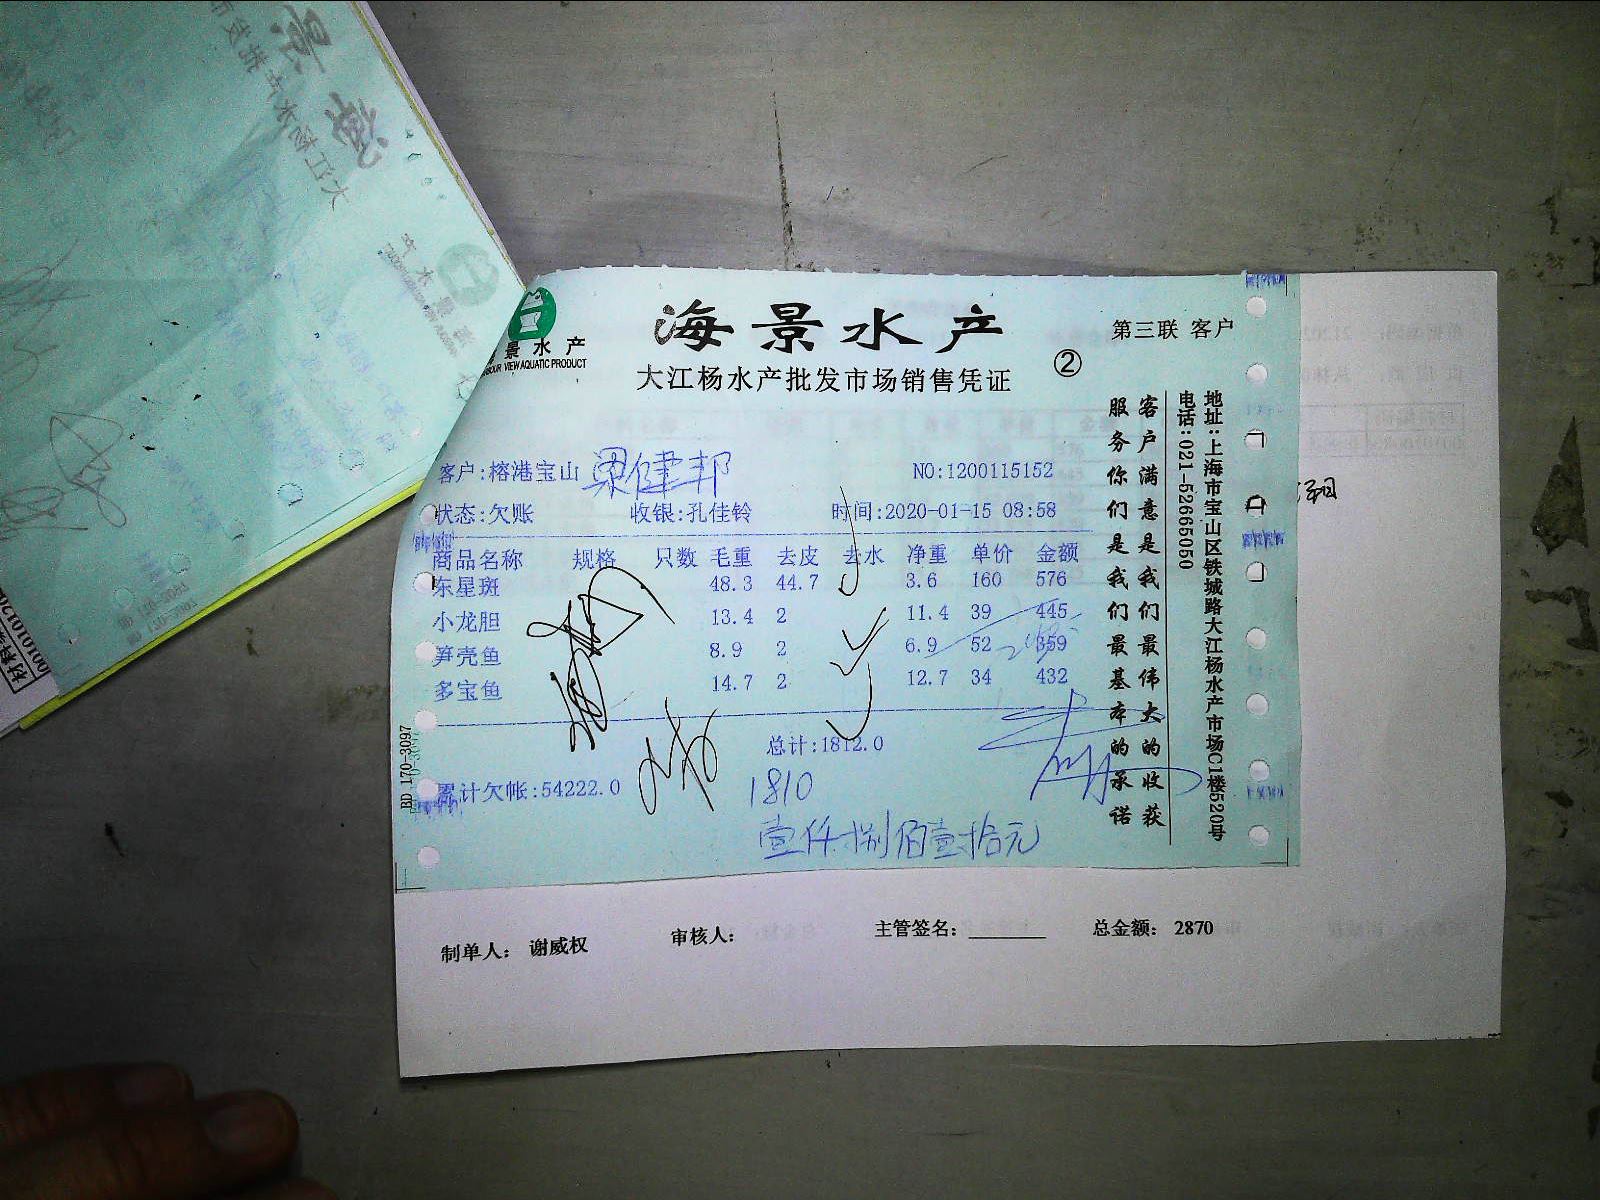 海景水产
第三联 客户
景水产
BOUR VIEW AQUATIC PRODUCT
大江杨水产批发市场销售凭证
②
客户:榕港宝山 梁健邦
NO:1200115152
状态:欠账 收银:孔佳铃 时间:2020-01-15 08:58
商品名称 规格 只数 毛重 去皮 去水 净重 单价 金额
东星斑 48.3 44.7 3.6 160 576
小龙胆 13.4 2 11.4 39 445
笋壳鱼 8.9 2 6.9 52 359
多宝鱼 14.7 2 12.7 34 432
总计:1812.0
累计欠帐:54222.0
1810
壹仟捌佰壹拾元
客户满意是我们最伟大的收获
服务你们是我们最基本的承诺
地址:上海市宝山区铁城路大江杨水产市场C1楼520号
电话:021-52665050
BD 170-3097
制单人: 谢威权 审核人: 主管签名: 总金额: 2870